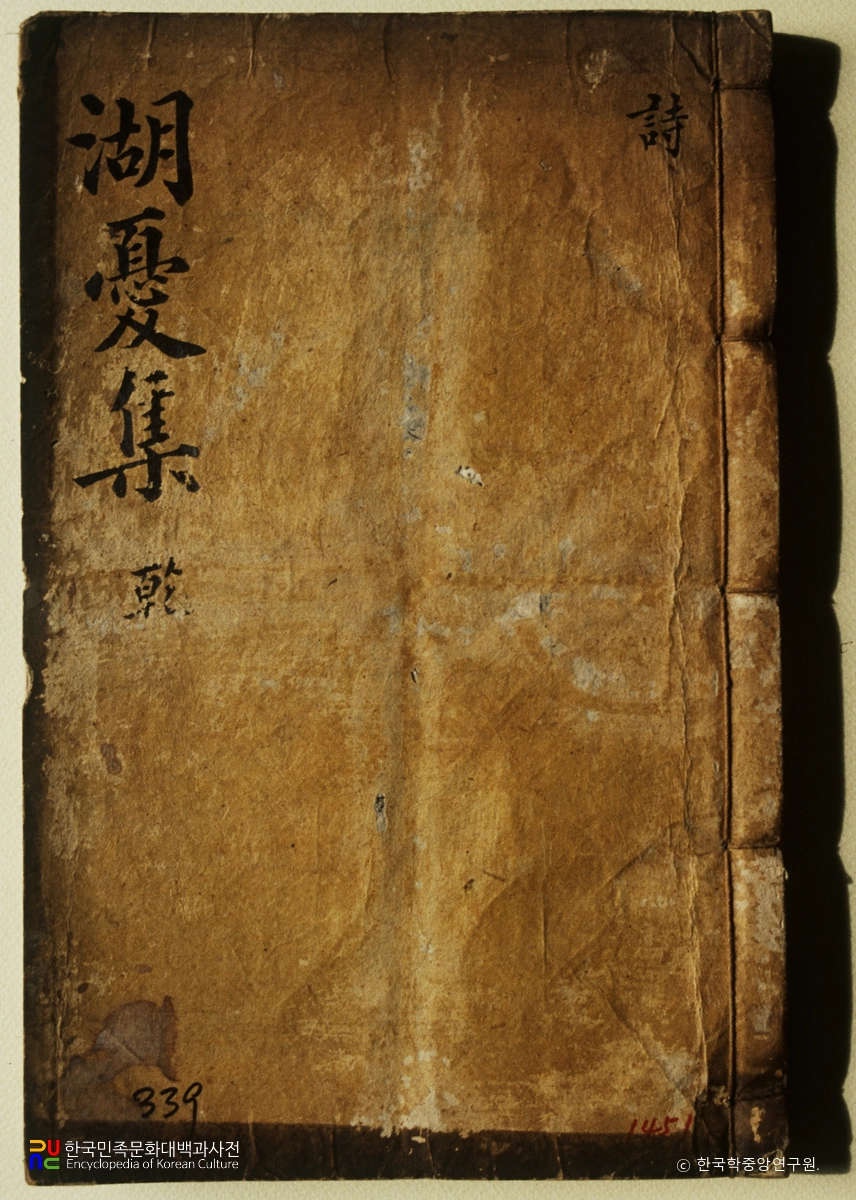 湖憂集 乾
詩
339
1451
한국민족문화대백과사전
Encyclopedia of Korean Culture
© 한국학중앙연구원.